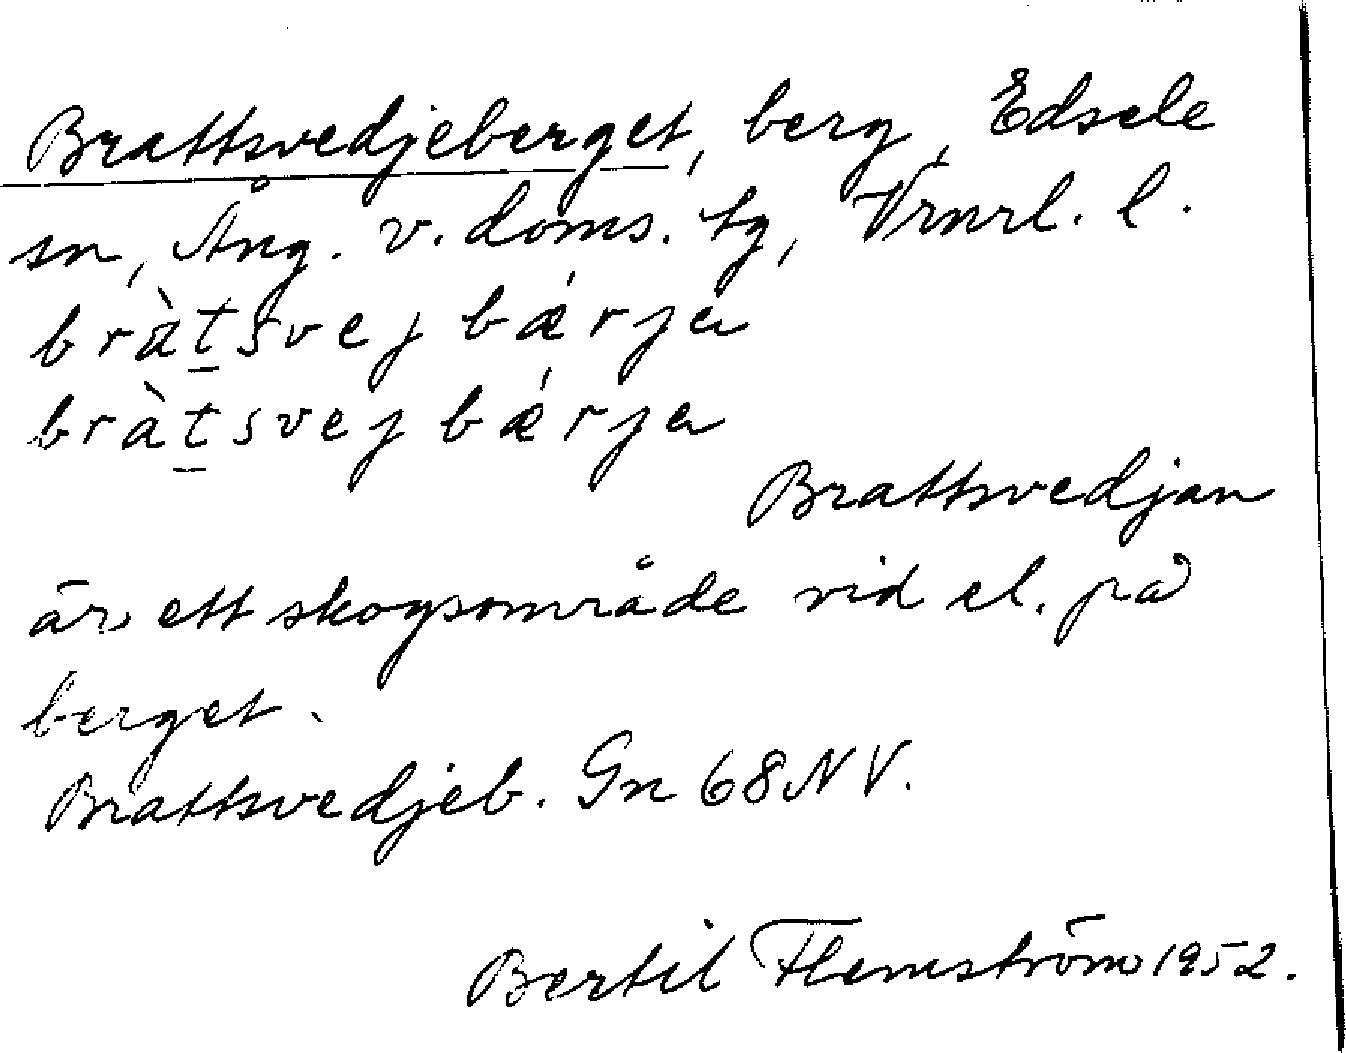 Brattsvedjeberget, berg, Edsele
sn, Ång. v. doms. tg, Vrnrl. l.
bràtsvejbǽrja
bràtsvejbǽrja
Brattsvedjan
är ett skogsområde vid el. på
berget.
Brattsvedjeb. Gn 68 NV.
Bertil Flemström 1952.